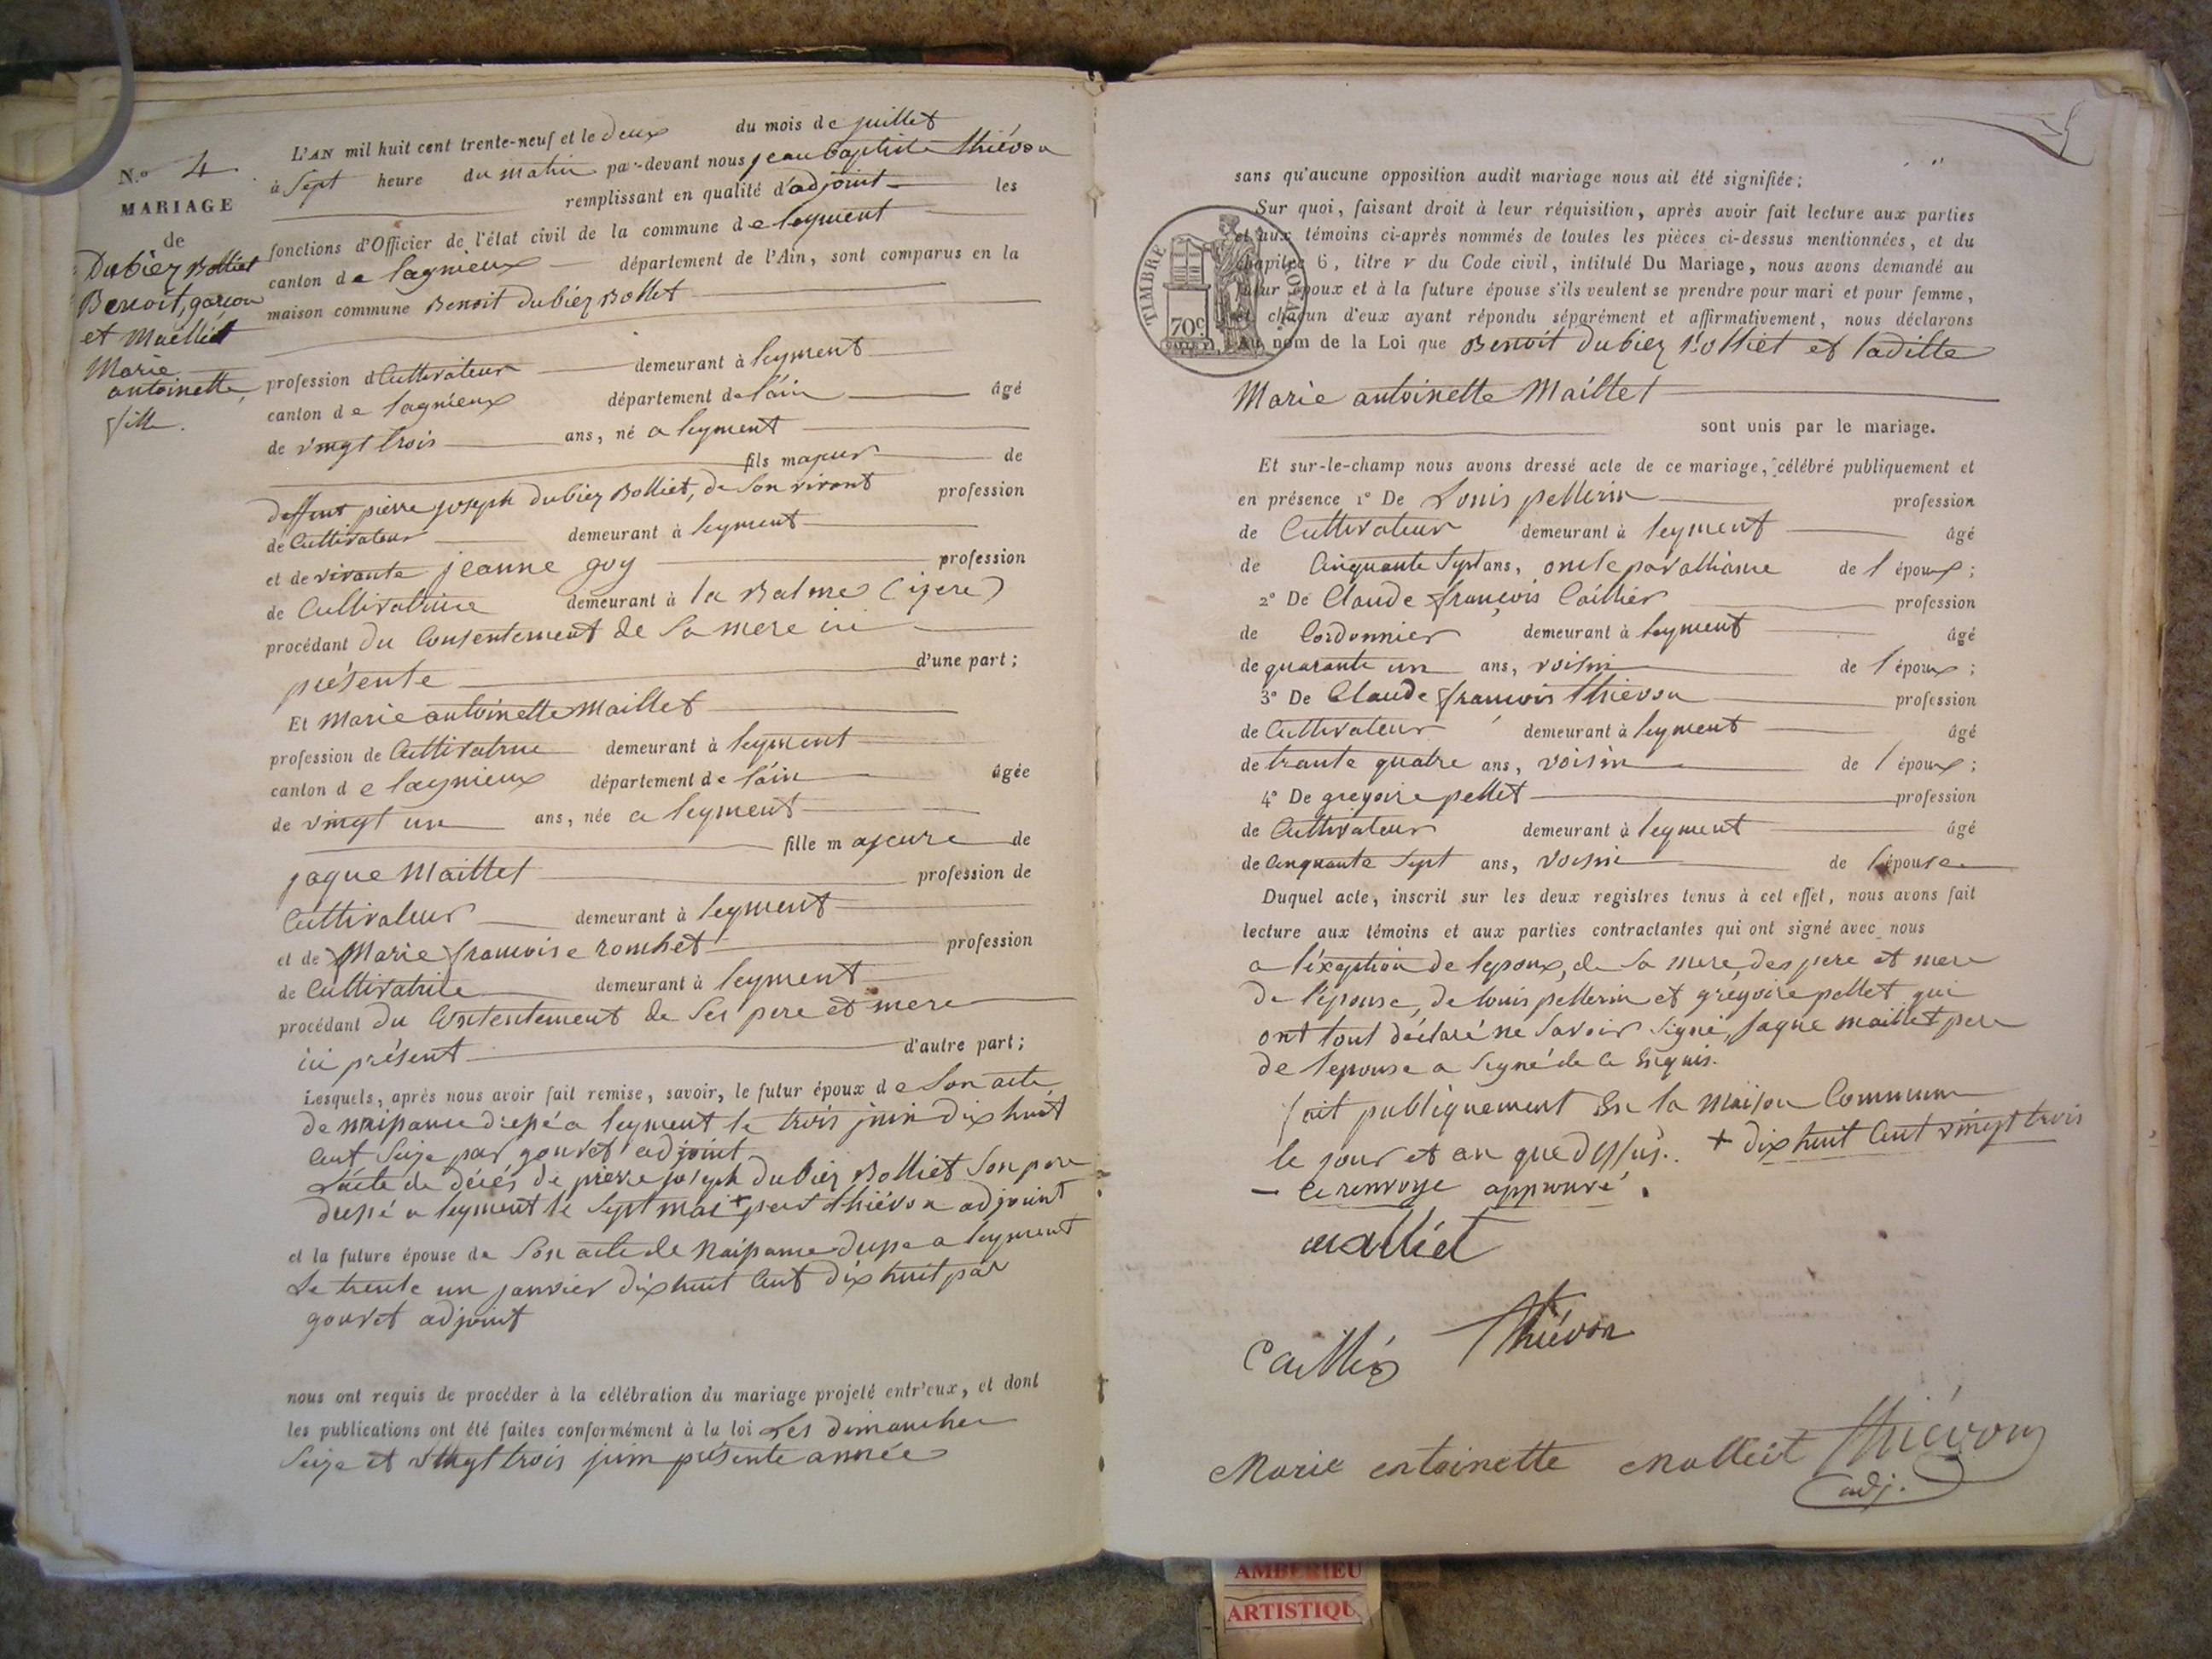 N.º 4
MARIAGE
de
Dubiez Bolliet
Benoit, garçon
et Maillet
Marie
antoinette,
fille.
L'AN mil huit cent trente-neuf et le deux du mois de juillet
à Sept heure du matin par-devant nous jean baptiste thiévon
remplissant en qualité d'adjoint les
fonctions d'Officier de l'état civil de la commune de leyment
canton de lagnieux département de l'Ain, sont comparus en la
maison commune Benoit dubiez Bolliet
profession d Cultivateur demeurant à leyment
canton de lagnieux département de l'ain âgé
de vingt trois ans, né a leyment
fils majeur de
deffunt pierre joseph dubiez Bolliet, de Son vivant profession
de Cultivateur demeurant à leyment
et de vivante jeanne goy profession
de Cultivatrice demeurant à la Balme (izere)
procédant du Consentement de Sa mere ici
présente d'une part ;
Et Marie antoinette Maillet
profession de Cultivatrice demeurant à leyment
canton de lagnieux département de l'ain âgée
de vingt un ans, née a leyment
fille majeure de
jaque Maillet profession de
Cultivateur demeurant à leyment
et de Marie françoise romhet profession
de Cultivatrice demeurant à leyment
procédant du Consentement de Ses pere et mere
ici présent d'autre part ;
Lesquels, après nous avoir fait remise, savoir, le futur époux de Son acte
de naissance dressé a leyment le trois juin dix huit
Cent Seize par gouvet adjoint
L'acte de décés de pierre joseph dubiez Bolliet Son pere
dressé a leyment le Sept mai + par thiévon adjoint
et la future épouse de Son acte de Naissance dressé a leyment
Le trente un janvier dix huit Cent dix huit par
gouvet adjoint
nous ont requis de procéder à la célébration du mariage projeté entr'eux, et dont
les publications ont été faites conformément à la loi Les dimanches
Seize et vingt trois juin présente année
sans qu'aucune opposition audit mariage nous ait été signifiée ;
Sur quoi, faisant droit à leur réquisition, après avoir fait lecture aux parties
et aux témoins ci-après nommés de toutes les pièces ci-dessus mentionnées, et du
chapitre 6, titre V du Code civil, intitulé Du Mariage, nous avons demandé au
futur époux et à la future épouse s'ils veulent se prendre pour mari et pour femme,
et chacun d'eux ayant répondu séparément et affirmativement, nous déclarons
au nom de la Loi que Benoit Dubiez Bolliet et laditte
TIMBRE ROYAL
70c
Marie antoinette Maillet
sont unis par le mariage.
Et sur-le-champ nous avons dressé acte de ce mariage, célébré publiquement et
en présence 1º De Louis pellerin profession
de Cultivateur demeurant à leyment âgé
de Cinquante Sept ans, oncle par alliance de l'époux ;
2º De Claude françois Caillier profession
de Cordonnier demeurant à leyment âgé
de quarante un ans, voisin de l'époux ;
3º De Claude françois thiévon profession
de Cultivateur demeurant à leyment âgé
de trante quatre ans, voisin de l'époux ;
4º De gregoire pellet profession
de Cultivateur demeurant à leyment âgé
de Cinquante Sept ans, voisin de l'épouse
Duquel acte, inscrit sur les deux registres tenus à cet effet, nous avons fait
lecture aux témoins et aux parties contractantes qui ont signé avec nous
a l'exeption de lepoux, de Sa mere, des pere et mere
de l'épouse, de louis pellerin et gregoire pellet qui
ont tout déclaré ne Savoir Signé, jaque maillet pere
de lepouse a Signé de ce Requis.
fait publiquement En la maison Commune
le jour et an que dessus. + dix huit Cent vingt trois
- Ce renvoye approuvé.
malliet
Caillier Thiévon
Marie entoinette Malleit Thiévon
adj.
AMBERIEU
ARTISTIQU